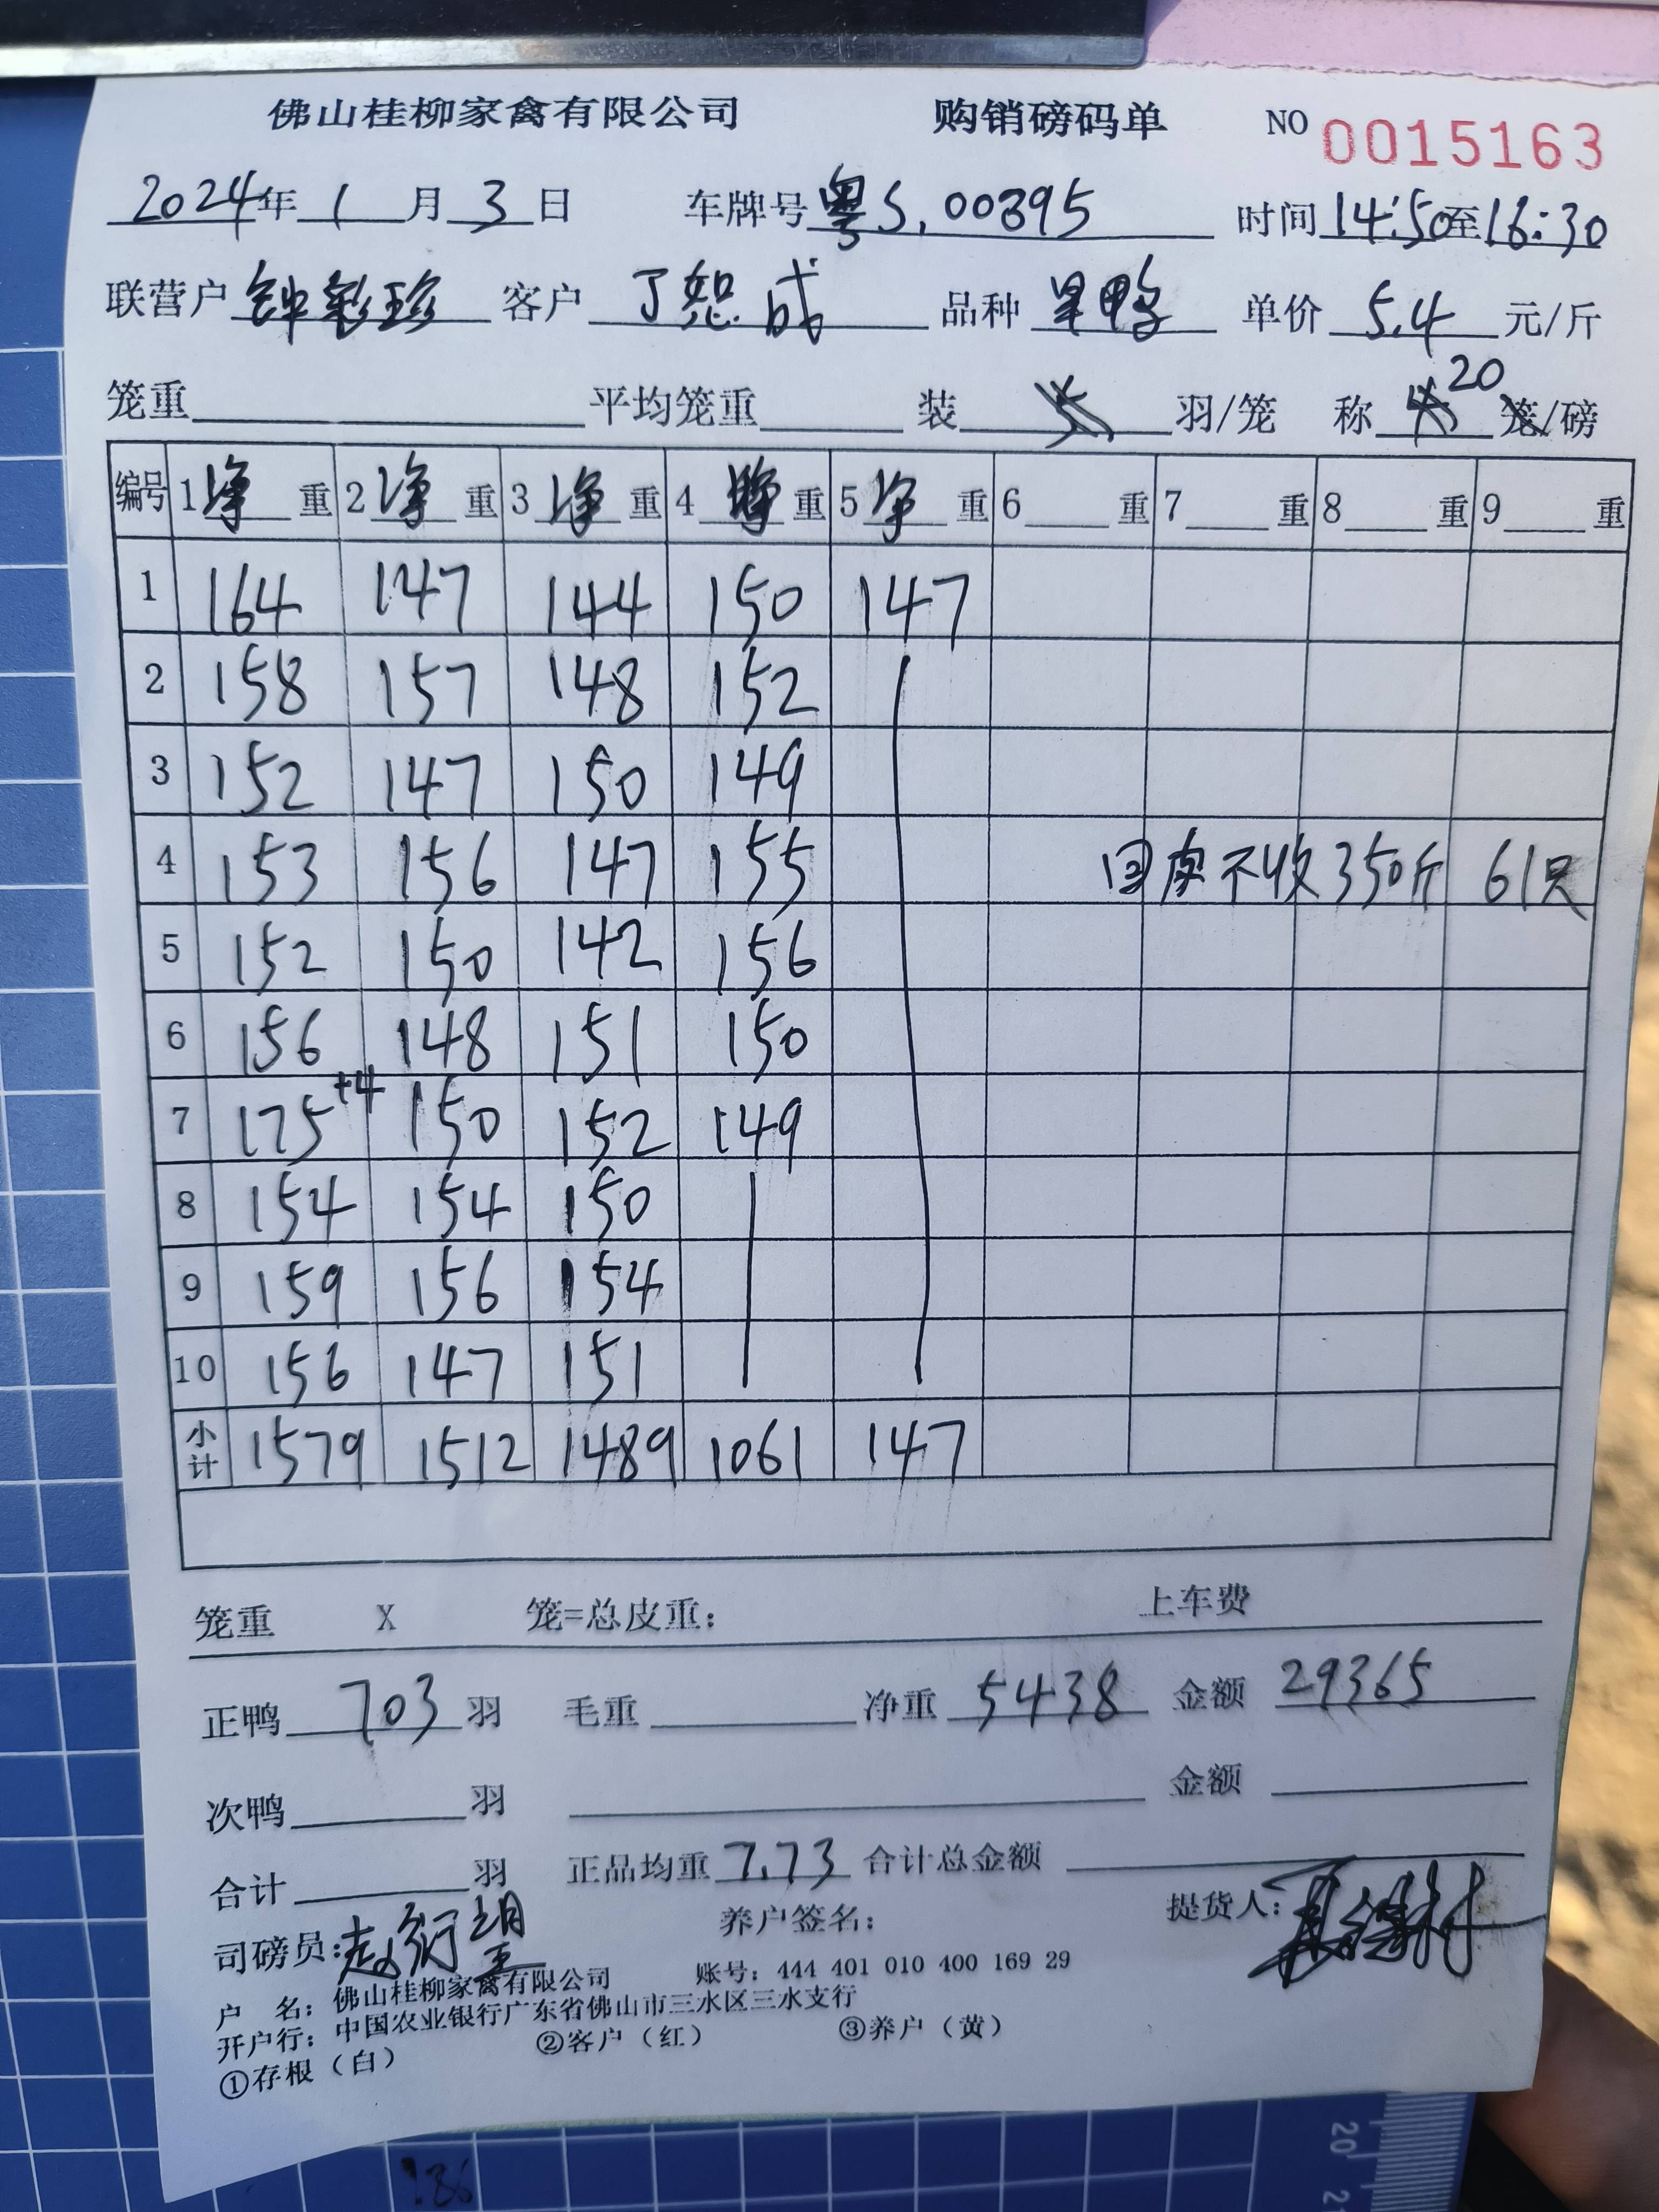 佛山桂柳家禽有限公司 购销磅码单 NO 0015163
2024年1月3日 车牌号 粤S.00395 时间 14:50至16:30
联营户 钟彩珍 客户 丁恕成 品种 旱鸭 单价 5.4 元/斤
笼重 平均笼重 装 羽/笼 称 20 笼/磅
编号 1净重 2净重 3净重 4净重 5净重 6重 7重 8重 9重
1 164 147 144 150 147
2 158 157 148 152
3 152 147 150 149
4 153 156 147 155 回 不收350斤 61只
5 152 150 142 156
6 156 148 151 150
7 175+4 150 152 149
8 154 154 150
9 159 156 154
10 156 147 151
小计 1579 1512 1489 1061 147
笼重 X 笼=总皮重: 上车费
正鸭 703 羽 毛重 净重 5438 金额 29365
次鸭 羽 金额
合计 羽 正品均重 7.73 合计总金额
司磅员: 赵 望 养户签名: 提货人:
户 名: 佛山桂柳家禽有限公司 账号: 444 401 010 400 169 29
开户行: 中国农业银行广东省佛山市三水区三水支行
①存根（白） ②客户（红） ③养户（黄）
20